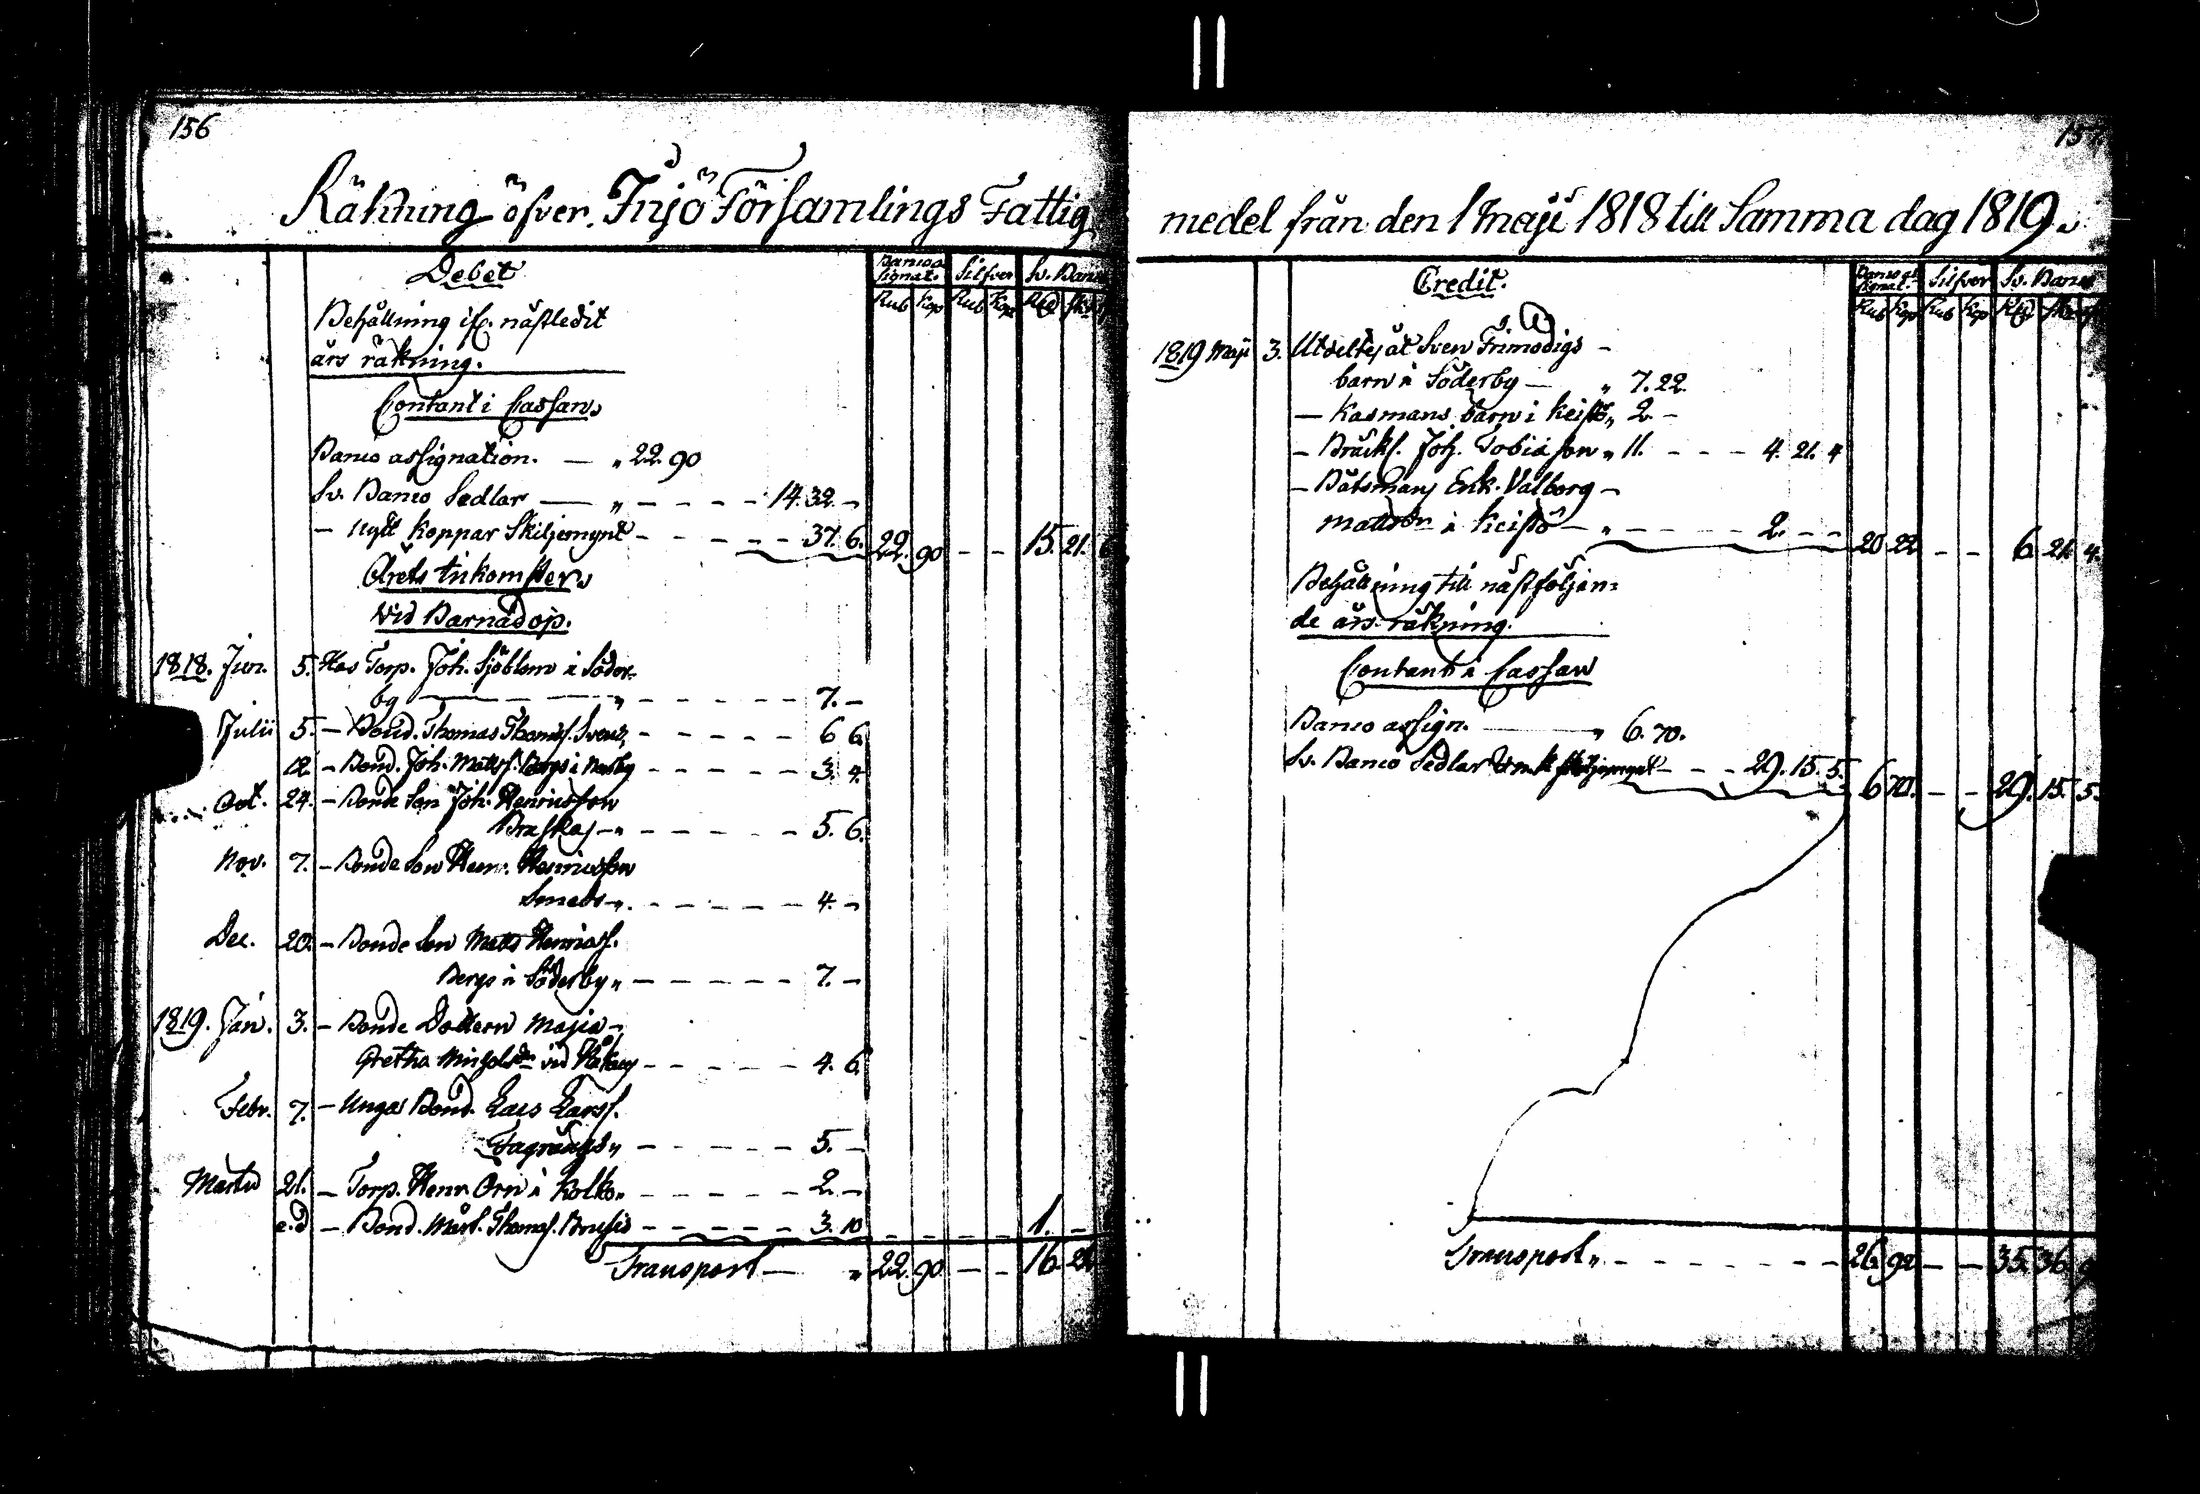 156
Räkning öfver Injö Församlings Fattig
Debet
Banco assignat. Silfver Sv. Banco
Rub Kop Rub Kop Rd Sk
Behållning ifr. nästledit
års räkning.
Contant i Cassan
Banco assignation. — „ 22. 90
Sv. Banco Sedlar — „ - - - - 14. 32. -
- nytt koppar Skiljemynt - - - - - 37. 6. 22. 90 - - 15. 21. 6
Årets inkomster
Vid Barnadop.
1818. Jun. 5. Hos Torp. Joh. Sjöblom i Söder-
by — „ - - - - 7. -
Julii 5. - Bond. Thomas Thomass. Svens, - - - - - 6 6.
12. - Bond. Joh. Mattss. Bergs i - - - - - 3. 4.
Oct. 24. - Bonde Son Joh. Henricsson
Braskas - „ - - - - - 5. 6.
Nov. 7. - Bonde Son Henr. Henricsson
Smeds - „ - - - - - 4. -
Dec. 20. - Bonde Son Matts Henricss.
Bergs i Söderby „ - - - - - 7. -
1819. Jan. 3. - Bonde Dottern Maja -
Gretha vid - - - - - 4. 6
Febr. 7. - Unga Bond. Lars Larss.
„ - - - - - 5. -
Martii 21. - Torp. Henr. Örn i Kolko „ - - - - - 2. -
e.d - Bond. Mårt. Thomass. Brusis - - - - - 3. 10 - - - - 1. -
Transport — „ 22. 90 - - 16. 21
157
medel från den 1 Maji 1818 till Samma dag 1819.
Credit.
Banco assignat. Silfver Sv. Banco
Rub Kop Rub Kop Rd Sk
1819 Maji 3. Utdeltes åt Sven Frimodigs -
barn i Söderby — „ 7. 22
- Kasmans barn i Keistö „ 2. -
- Bräckl. Joh. Tobiasson „ 11. - - - 4. 21. 4
- Båtsmans Enk. Valborg -
Mattsdr i Keistö - „ - - - - 2. - - 20 22 - - 6 21. 4.
Behållning till nästföljan=
de års räkning.
Contant i Cassan
Banco assign. — „ 6. 70.
Sv. Banco Sedlar skiljemynt - - - 29. 15. 5. 6 70. - - 29. 15. 5.
Transport „ - - - - - - - 26. 92 - - 35. 36. 9